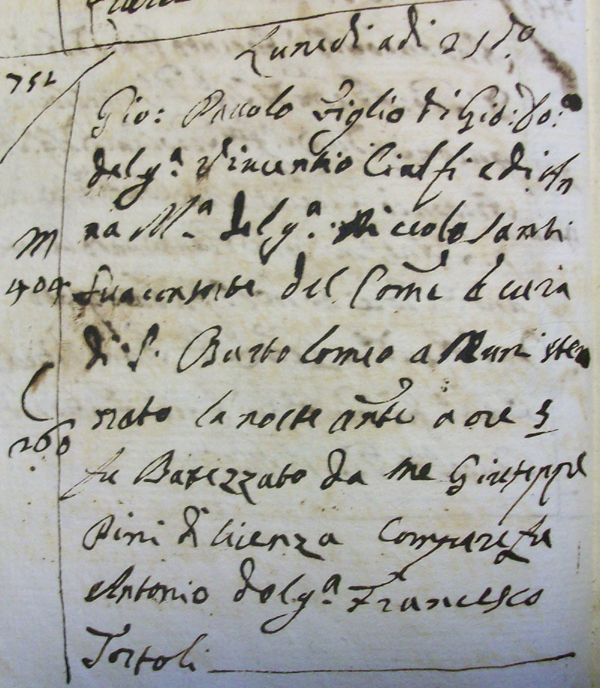 Lunedi adi 21 do
752
Gio: Paolo Figlio di Gio: Bo:
del qm. Vincentio Cialfi e di An
na Ma. del qm. Niccolo Santi
M
404
sua consorte del Come e cura
di S. Bartolomeo a
nato la notte ante a ore 5
260
fu Batezzato da me Giuseppe
Pini di licenza Compare fu
Antonio del qm. Francesco
Tortoli